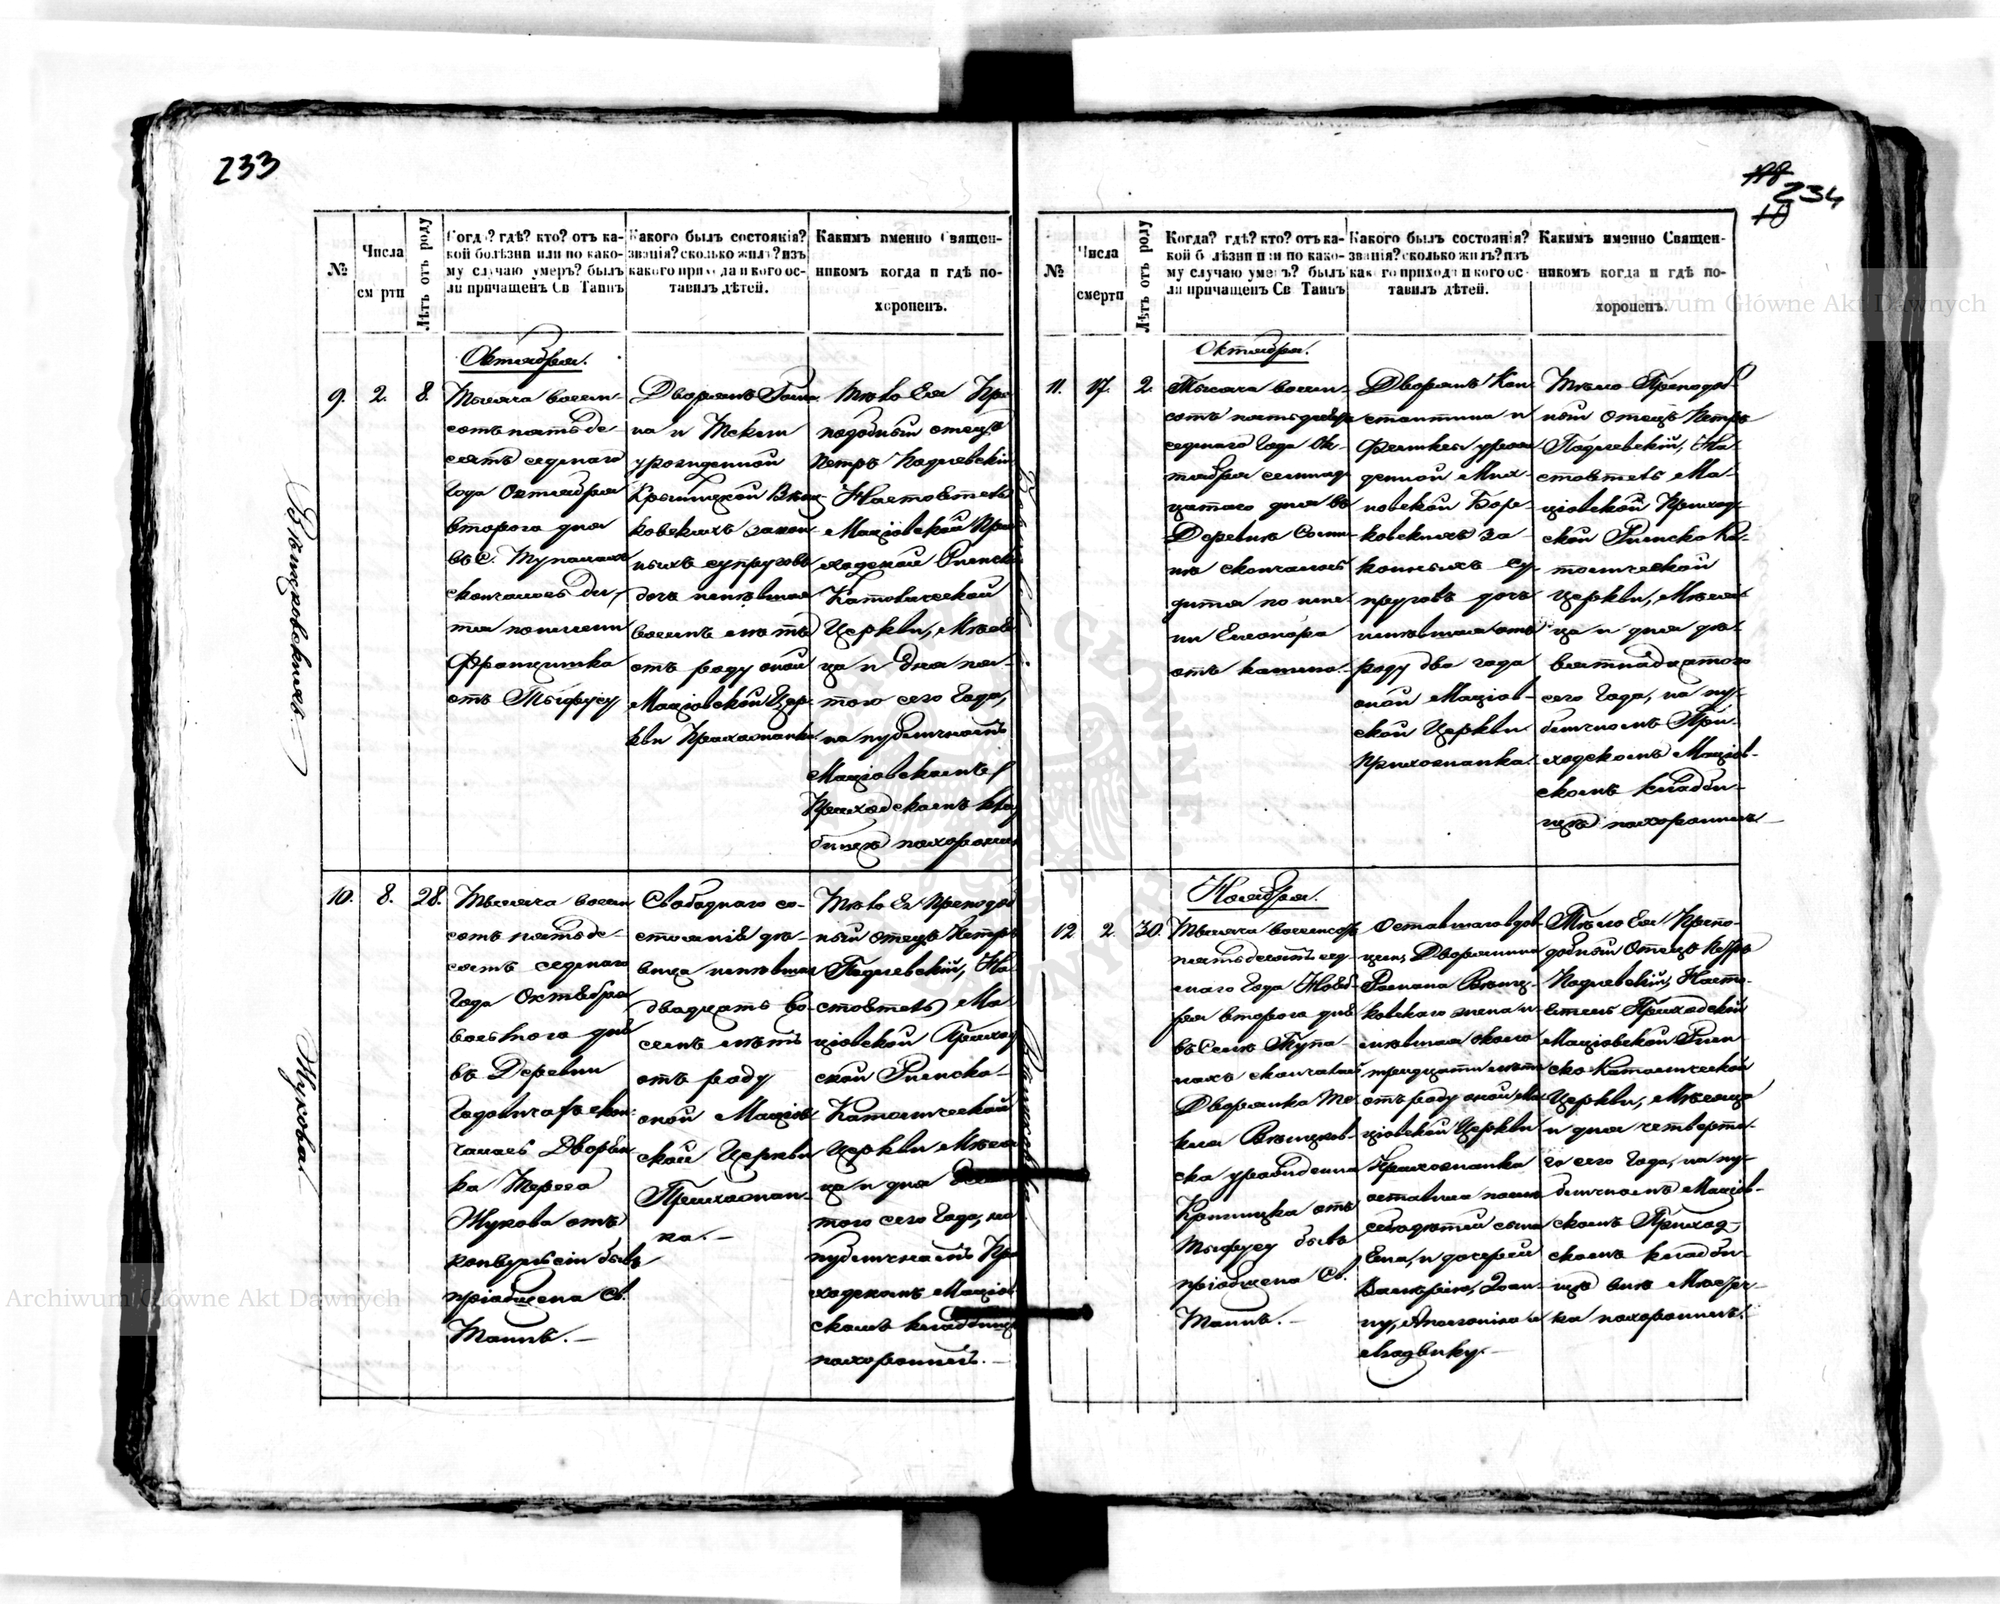 233
№
Числа
смерти
Лѣтъ отъ роду
Когда? гдѣ? кто? отъ ка-
кой болѣзни или по како-
му случаю умеръ? былъ
ли причащенъ Св. Таинъ
Какого былъ состоянія?
званія? сколько жилъ? изъ
какого прихода и кого ос-
тавилъ дѣтей.
Какимъ именно Священ-
никомъ когда и гдѣ по-
хороненъ.
Октября.
9.
2.
8.
Тысяча восем-
сотъ пятьде-
сятъ седьмаго
Года Октября
втораго дня
въ С. Тупалахъ
скончалось ди-
тя по имени
Францишка
отъ Тыфусу
Дворянъ
на и Теклы
урожденной
Крыницкой Вѣнц-
ковскихъ закон-
ныхъ супруговъ
дочь имѣвшая
восемь лѣтъ
отъ роду оной
Маціовской Цер-
кви Прихожанка.
Тѣло Ея Пре-
подобный отецъ
Петръ Подлевскій
Настоятель
Маціовской При-
ходской Римско
Католической
Церкви, Мѣся-
ца и дня пя-
того сего Года,
на публичномъ
Маціовскомъ
Приходскомъ кла-
бищѣ похоронилъ
Вѣнцковскихъ.
10.
8.
28.
Тысяча восем
сотъ пятьде-
сятъ седьмаго
Года Октября
восьмого дня
въ Деревни
Годовичахъ скон-
чалась Дворян-
ка Тереса
Жукова отъ
конвульсіи бывъ
пріобщена Св.
Таинъ.—
Свободнаго со-
стоянія дѣ-
вица имѣвшая
двадцать во-
семь лѣтъ
отъ роду
оной Маціов-
ской Церкви
Прихожан-
ка.—
Тѣло Ея Преподоб
ный Отецъ Петръ
Подлевскій, На-
стоятель Ма-
ціовской Приход
ской Римско-
Католической
Церкви Мѣся-
ца и дня
того сего Года, на
публичномъ При
ходскомъ Маціов
скомъ кладбищѣ
похоронилъ.—
Жукова
234
№
Числа
смерти
Лѣтъ отъ роду
Когда? гдѣ? кто? отъ ка-
кой болѣзни или по како-
му случаю умеръ? былъ
ли причащенъ Св. Таинъ
Какого былъ состоянія?
званія? сколько жилъ? изъ
какого прихода и кого ос-
тавилъ дѣтей.
Какимъ именно Священ-
никомъ когда и гдѣ по-
хороненъ.
Октября.
11.
17.
2.
Тысяча восем-
сотъ пятьдесятъ
седьмаго Года Ок-
тября семнад-
цатаго дня въ
Деревнѣ
нѣ скончалось
дитя по име-
ни Елеонора
отъ кашлю.
Дворянъ Кон-
стантина и
Фелиціи урож-
денной Мих-
новской Бор-
ковскихъ за-
конныхъ су-
пруговъ дочь
имѣвшая отъ
роду два года
оной Маціов-
ской Церкви
Прихожанка.
Тѣло Преподоб-
ный Отецъ Петръ
Подлевскій, На-
стоятель Ма-
ціовской Приход-
ской Римско Ка-
толической
Церкви, Мѣся-
ца и дня де-
вятнадцатого
сего Года, на пу-
бличномъ При-
ходскомъ Маціов-
скомъ кладби-
щѣ похоронилъ—
Ноября.
12
2.
30.
Тысяча восемсотъ
пятьдесятъ сед-
маго Года Нояб-
ря втораго дня
въ Селѣ Тупа-
лахъ скончалась
Дворянка Те-
кля Вѣнцков-
ска урожденна
Крыницка отъ
Тыфусу бывъ
пріобщена Св.
Таинъ.—
Оставшаго вдов-
цемъ Дворянина
Романа Вѣнц-
ковскаго жена и-
мѣвшая около
тридцати лѣтъ
отъ роду оной Ма-
ціовской Церкви
Прихожанка
оставила после
себя дѣтей сына
и дочерей
Валерію, Іоан-
ну, Антонію и
Людвику.—
Тѣло Ея Препо-
добный Отецъ Петръ
Подлевскій, Насто-
ятель Приходской
Маціовской Рим
ско Католической
Церкви, Мѣсяца
и дня четверта-
го сего Года, на пу-
бличномъ Маціов-
скомъ Приход-
скомъ кладби-
щѣ
похоронилъ.
Archiwum Główne Akt Dawnych
Archiwum Główne Akt Dawnych